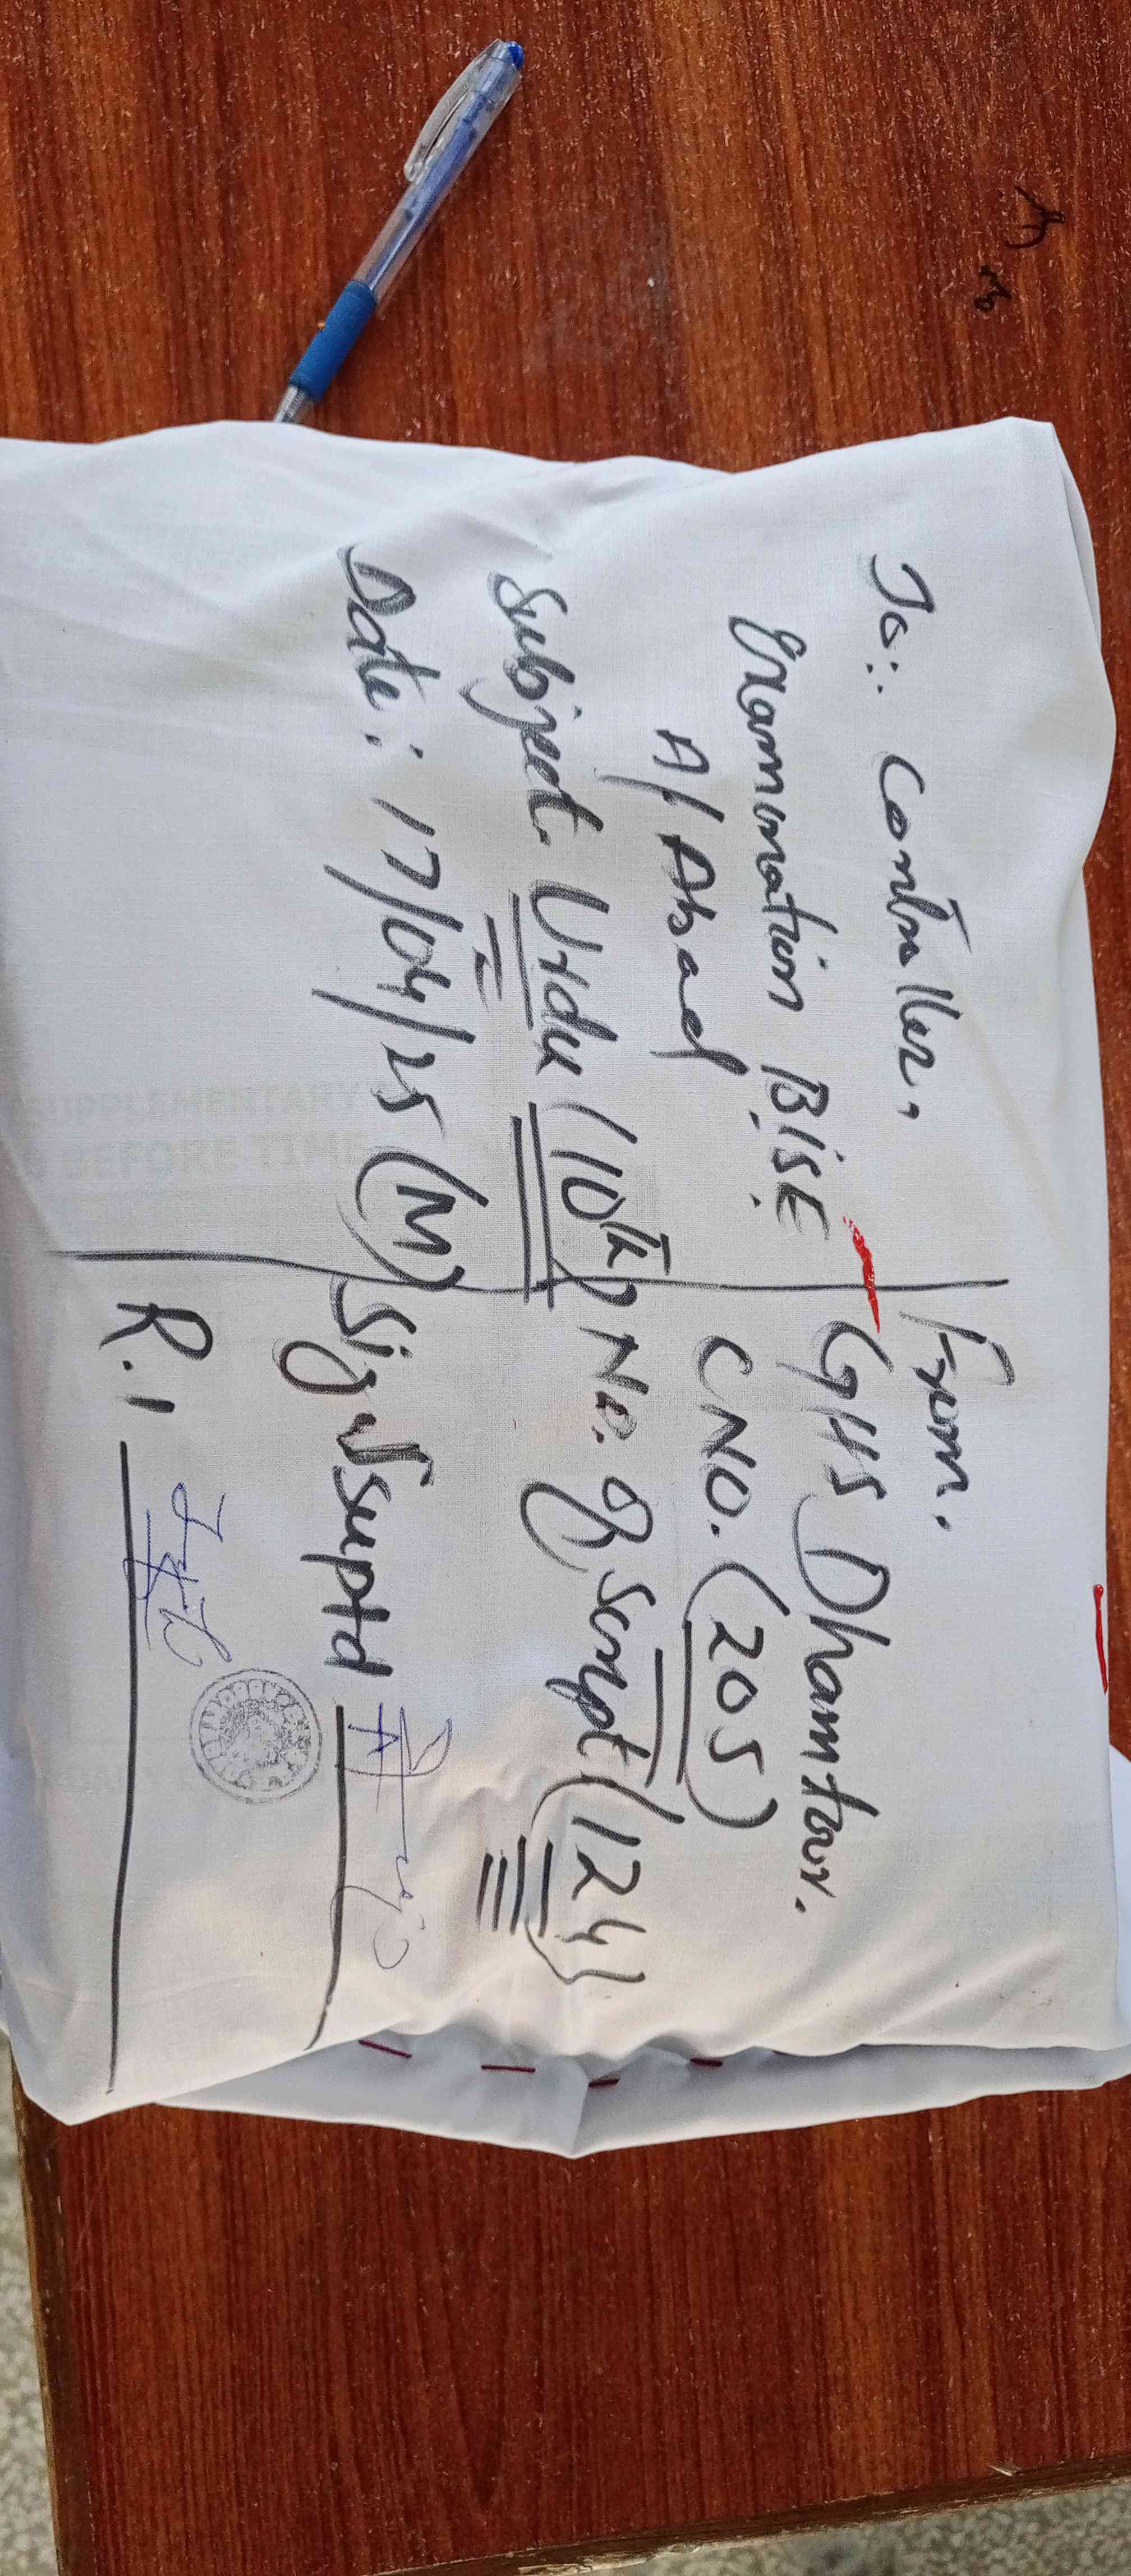 To:. Controller.
Examination BISE
A/Abad
Subject. Urdu (10th)
Date: 17/04/25 (M)
From.
GHS Dhamtour.
CNO. (205)
No. of script (124)
Sig of suptd
R.I